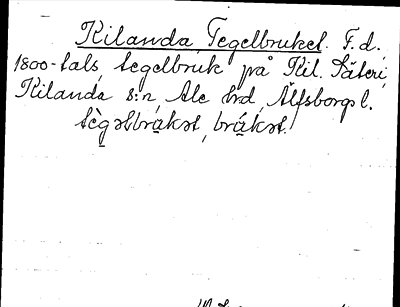 Kilanda, Tegelbruket. F. d.
1800-tals tegelbruk på Kil. Säteri,
Kilanda s:n, Ale hrd, Älfsborgs l.
tègəlbrùkət, brúkət.